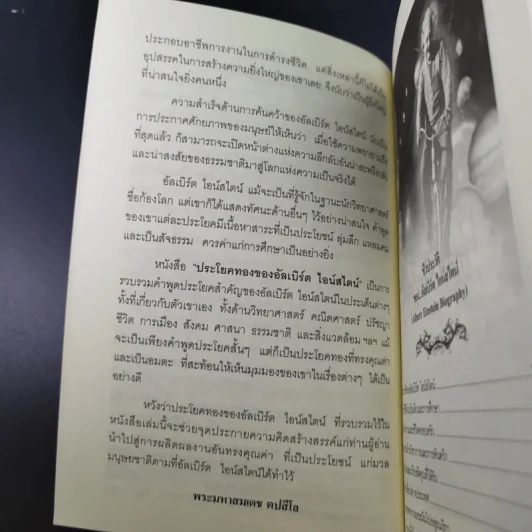 ประกอบอาชีพการงานในการดำรงชีวิต แต่สิ่งเหล่านี้ก็ไม่ได้เป็น
อุปสรรคในการสร้างความยิ่งใหญ่ของเขาเลย จึงนับว่าเป็นผู้ยิ่งใหญ่
ที่น่าสนใจยิ่งคนหนึ่ง
ความสำเร็จด้านการค้นคว้าของอัลเบิร์ต ไอน์สไตน์ นับเป็น
การประกาศศักยภาพของมนุษย์ให้เห็นว่า เมื่อใช้ความพยายามถึง
ที่สุดแล้ว ก็สามารถจะเปิดหน้าต่างแห่งความลึกลับอันน่าสะพรึงกลัว
และน่าสงสัยของธรรมชาติมาสู่โลกแห่งความเป็นจริงได้
อัลเบิร์ต ไอน์สไตน์ แม้จะเป็นที่รู้จักในฐานะนักวิทยาศาสตร์
ชื่อก้องโลก แต่เขาก็ได้แสดงทัศนะด้านอื่นๆ ไว้อย่างน่าสนใจ คำพูด
ของเขาแต่ละประโยคมีเนื้อหาสาระที่เป็นประโยชน์ ลุ่มลึก แหลมคม
และเป็นสัจธรรม ควรค่าแก่การศึกษาเป็นอย่างยิ่ง
หนังสือ "ประโยคทองของอัลเบิร์ต ไอน์สไตน์" เป็นการ
รวบรวมคำพูดประโยคสำคัญของอัลเบิร์ต ไอน์สไตน์ในประเด็นต่างๆ
ทั้งที่เกี่ยวกับตัวเขาเอง ทั้งด้านวิทยาศาสตร์ คณิตศาสตร์ ปรัชญา
ชีวิต การเมือง สังคม ศาสนา ธรรมชาติ และสิ่งแวดล้อม ฯลฯ แม้
จะเป็นเพียงคำพูดประโยคสั้นๆ แต่ก็เป็นประโยคทองที่ทรงคุณค่า
และเป็นอมตะ ที่สะท้อนให้เห็นมุมมองของเขาในเรื่องต่างๆ ได้เป็น
อย่างดี
หวังว่าประโยคทองของอัลเบิร์ต ไอน์สไตน์ ที่รวบรวมไว้ใน
หนังสือเล่มนี้จะช่วยจุดประกายความคิดสร้างสรรค์แก่ท่านผู้อ่าน
นำไปสู่การผลิตผลงานอันทรงคุณค่า ที่เป็นประโยชน์ แก่มวล
มนุษยชาติตามที่อัลเบิร์ต ไอน์สไตน์ได้ทำไว้
พระมหาสมเดช ตปสีโล
ชีวประวัติ
อัลเบิร์ต ไอน์สไตน์
(Albert Einstein Biography)